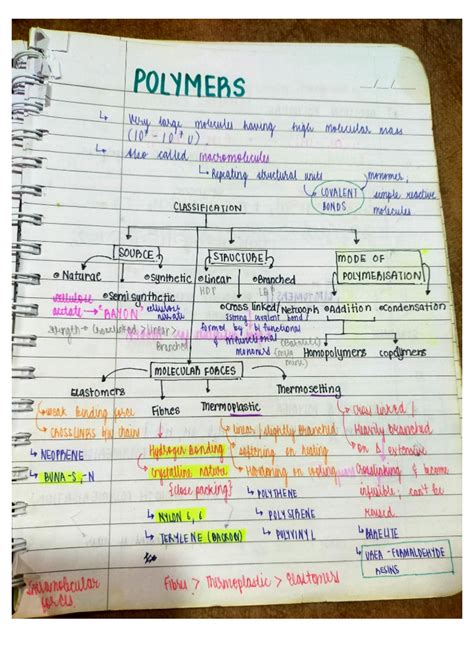 POLYMERS
Very large molecules having high molecular mass
(10³ - 10⁷ u)
Also called macromolecules
Repeating structural units
monomer,
simple reactive
molecules
COVALENT
BONDS
CLASSIFICATION
SOURCE
STRUCTURE
MODE OF
POLYMERISATION
Natural
Synthetic
Linear
Branched
HDP
Semi synthetic
cellulose
acetate → RAYON
cellulose
nitrate
Cross linked/Network
(strong covalent bond)
formed by bi functional
& trifunctional
monomers
(Bakelite)
Addition
Condensation
Strength → Cross linked > linear >
Branched
Homopolymers
copolymers
MOLECULAR FORCES
Elastomers
Fibres
Thermoplastic
Thermosetting
weak bonding force
CROSSLINKS b/w chain
NEOPRENE
BUNA-S, -N
Hydrogen Bonding
Crystalline nature
{close packing}
NYLON 6, 6
TERYLENE (DACRON)
linear / slightly branched
softening on heating
Hardening on cooling
POLYTHENE
POLYSTRENE
POLYVINYL
Cross linked /
Heavily branched
On Δ extensive
Crosslinking & become
infusible, can't be
reused.
BAKELITE
UREA - FORMALDEHYDE
RESINS
Intramolecular
forces
Fibres > Thermoplastic > Elastomers